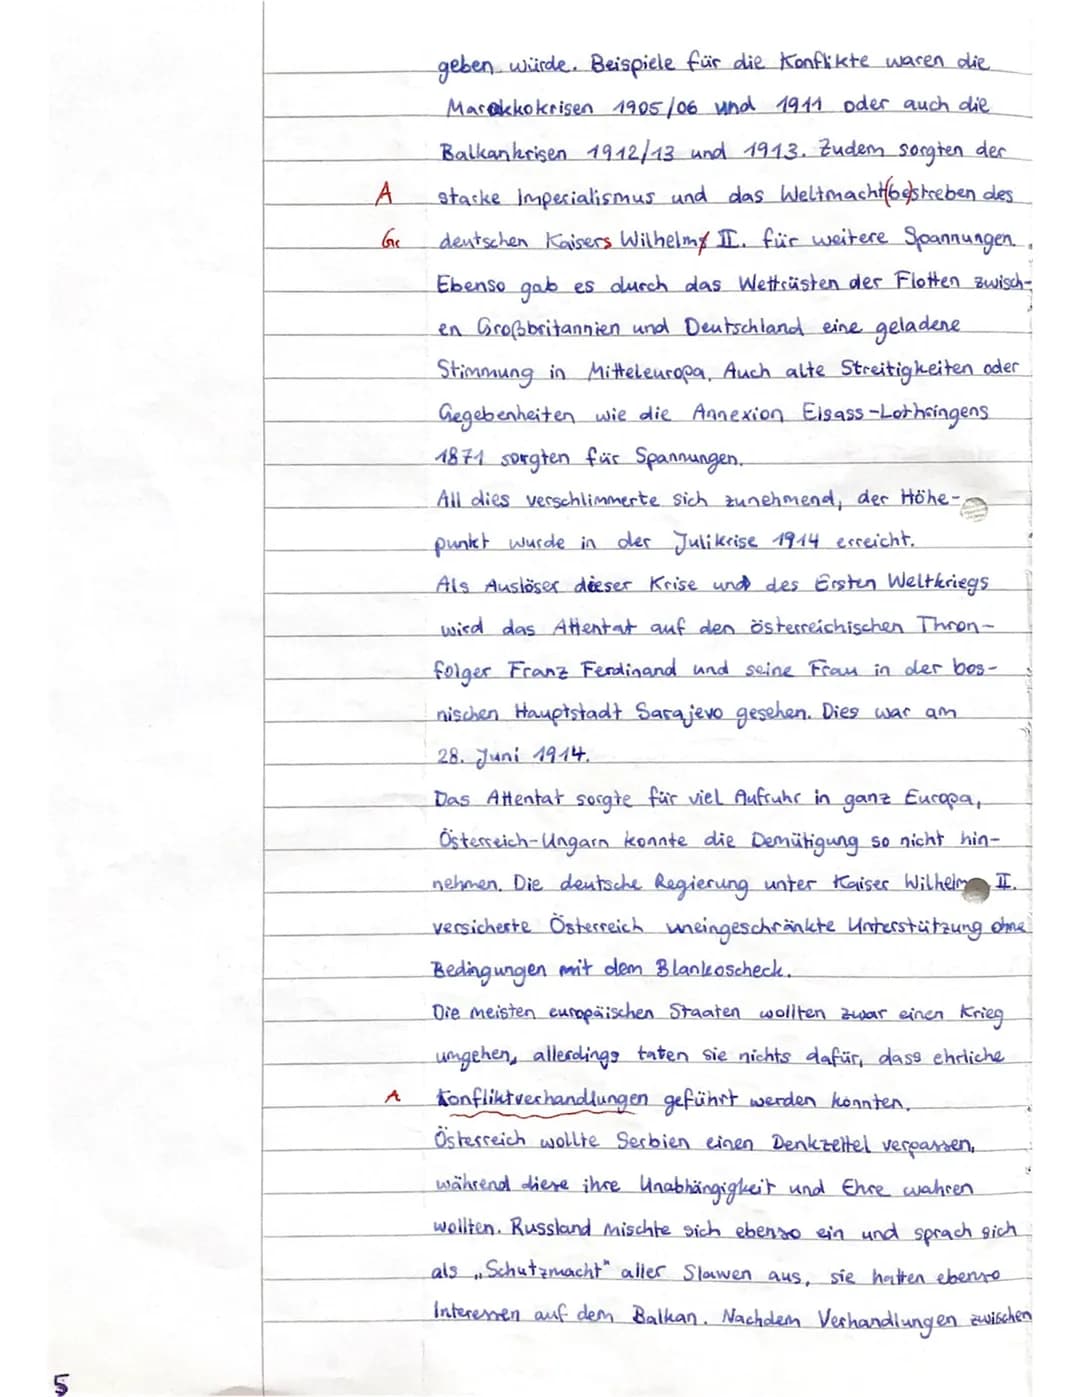 geben würde. Beispiele für die Konflikte waren die
Marokkokrisen 1905/06 und 1911 oder auch die
Balkankrisen 1912/13 und 1913. Zudem sorgten der
A starke Imperialismus und das Weltmacht(be)streben des
Gr deutschen Kaisers Wilhelms II. für weitere Spannungen.
Ebenso gab es durch das Wettrüsten der Flotten zwisch-
en Großbritannien und Deutschland eine geladene
Stimmung in Mitteleuropa. Auch alte Streitigkeiten oder
Gegebenheiten wie die Annexion Elsass-Lothringens
1871 sorgten für Spannungen.
All dies verschlimmerte sich zunehmend, der Höhe-
punkt wurde in der Julikrise 1914 erreicht.
Als Auslöser dieser Krise und des Ersten Weltkriegs
wird das Attentat auf den österreichischen Thron-
folger Franz Ferdinand und seine Frau in der bos-
nischen Hauptstadt Sarajevo gesehen. Dies war am
28. Juni 1914.
Das Attentat sorgte für viel Aufruhr in ganz Europa,
Österreich-Ungarn konnte die Demütigung so nicht hin-
nehmen. Die deutsche Regierung unter Kaiser Wilhelm II.
versicherte Österreich uneingeschränkte Unterstützung ohne
Bedingungen mit dem Blankoscheck.
Die meisten europäischen Staaten wollten zwar einen Krieg
umgehen, allerdings taten sie nichts dafür, dass ehrliche
A Konfliktverhandlungen geführt werden konnten.
Österreich wollte Serbien einen Denkzettel verpassen,
während diese ihre Unabhängigkeit und Ehre wahren
wollten. Russland mischte sich ebenso ein und sprach sich
als „Schutzmacht" aller Slawen aus, sie hatten ebenso
Interessen auf dem Balkan. Nachdem Verhandlungen zwischen
5